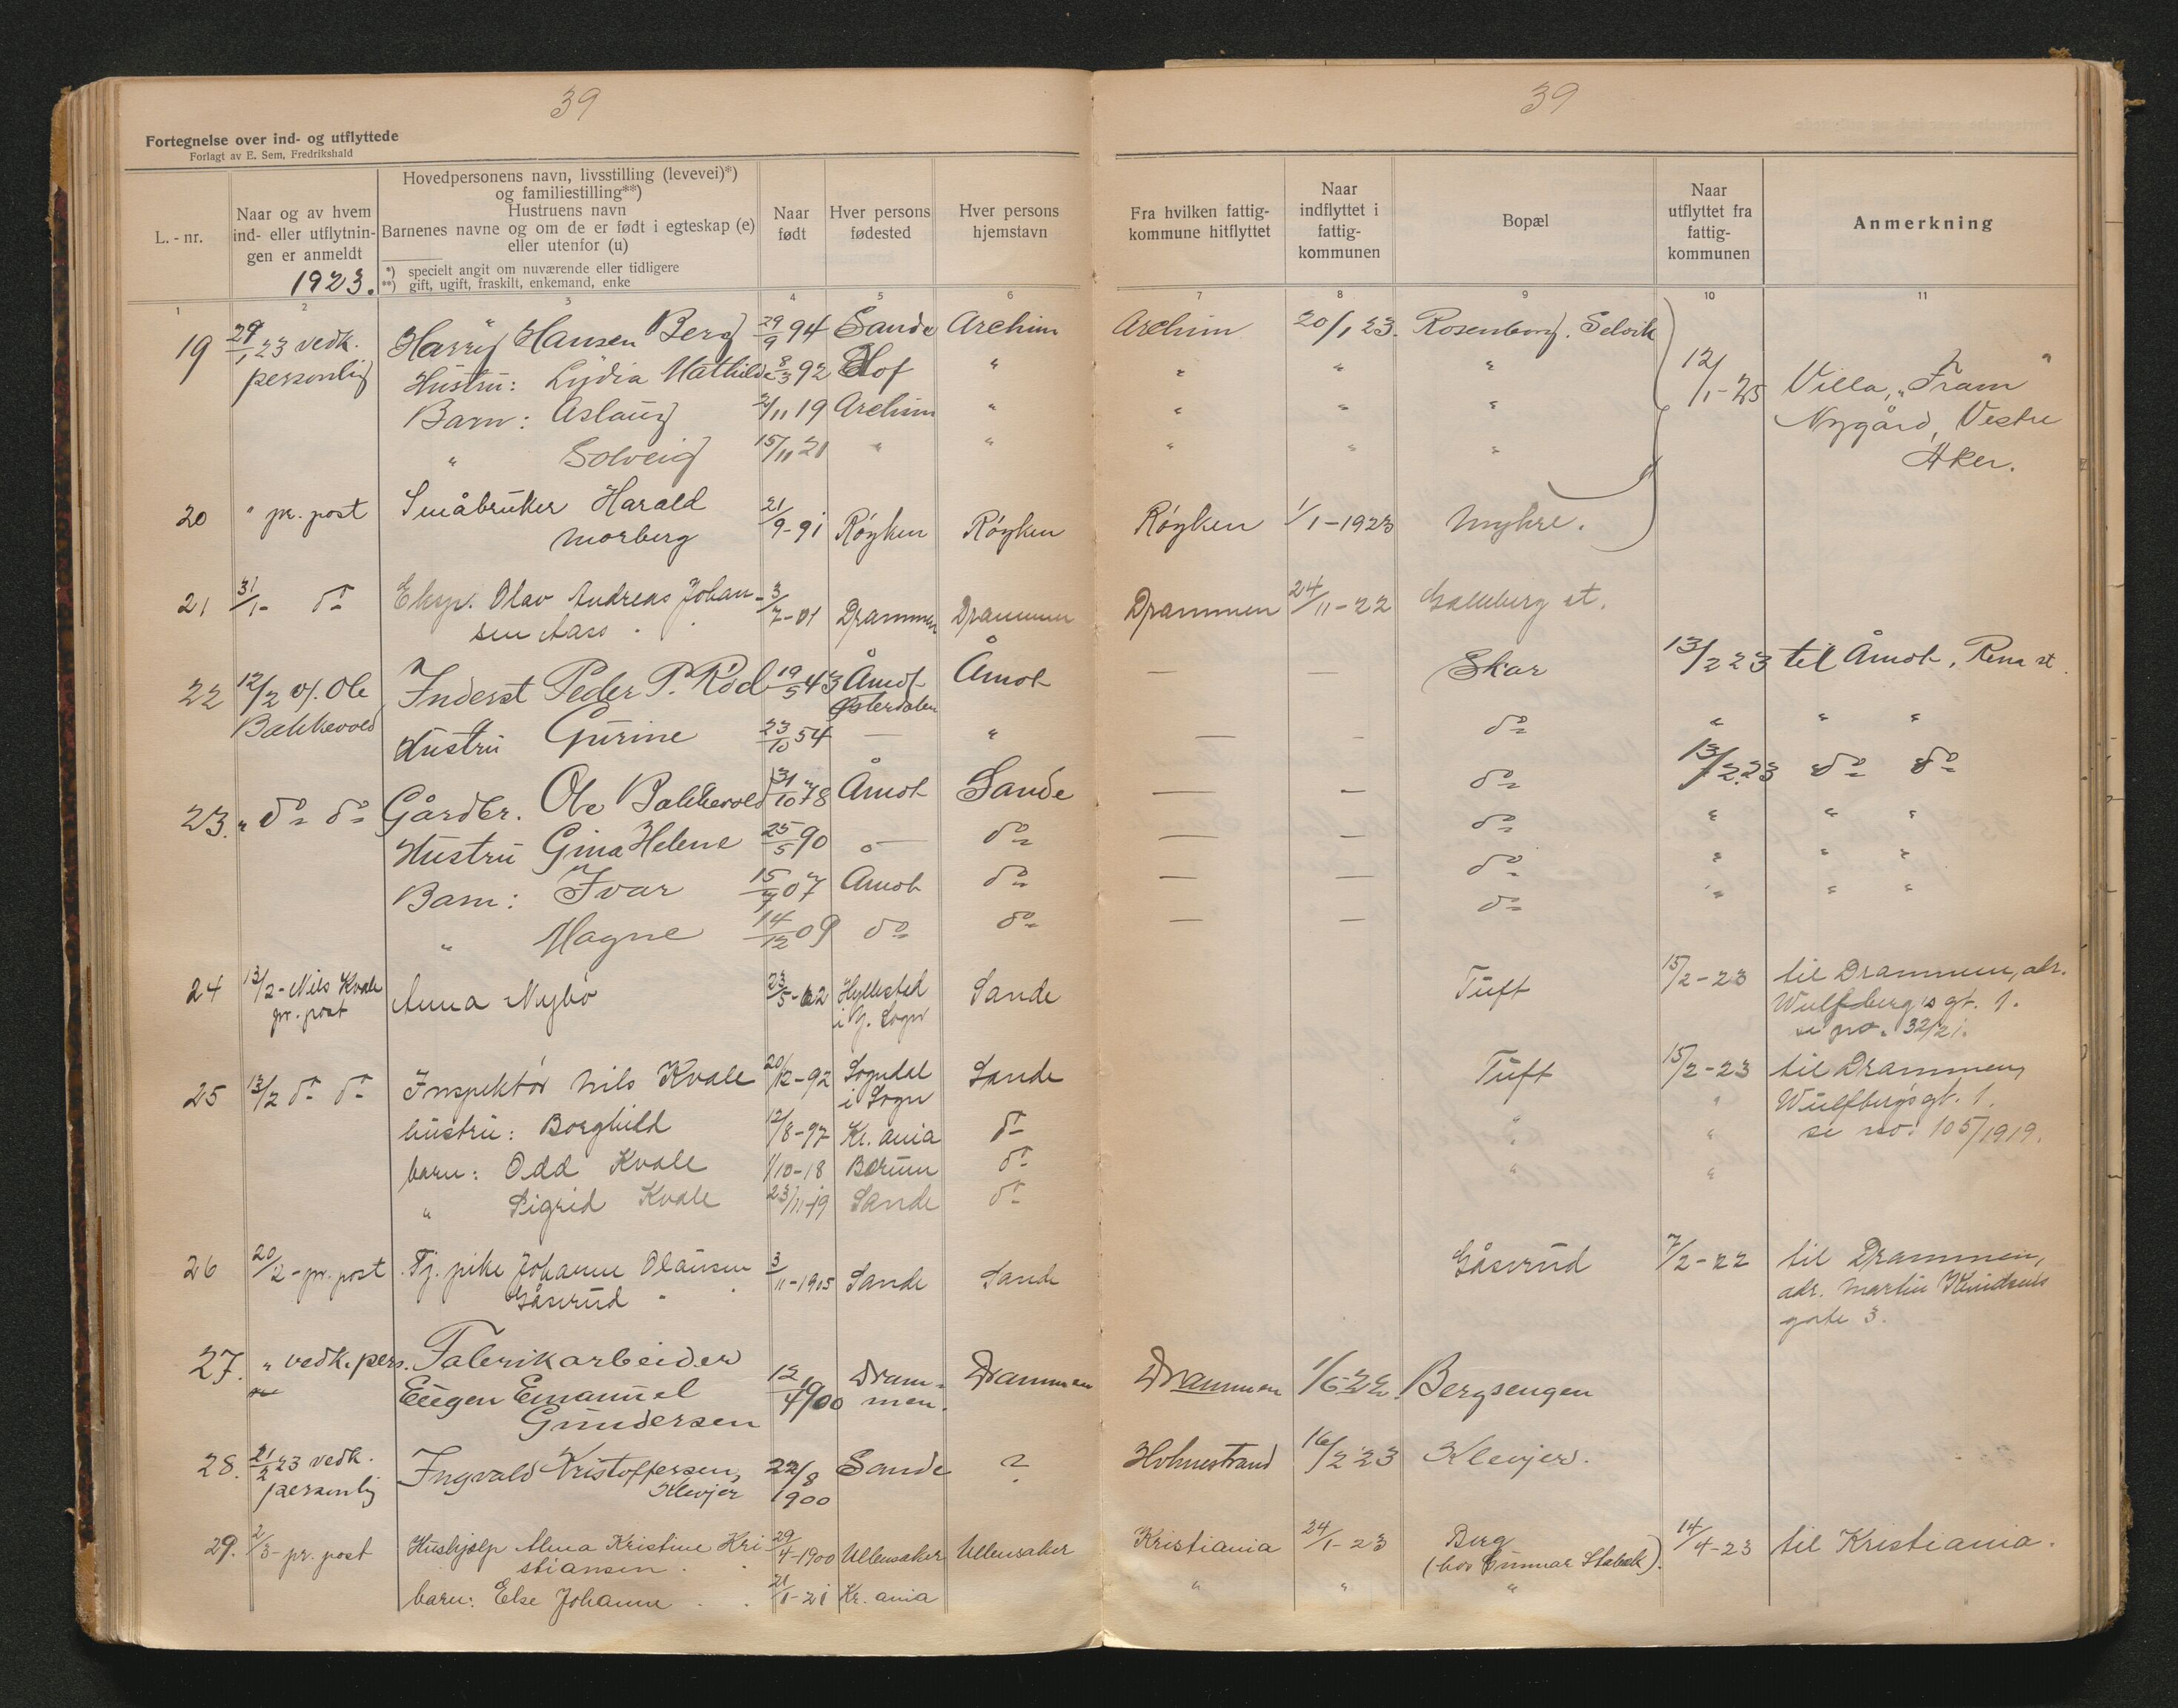 39
39
Fortegnelse over ind- og utflyttede
Forlagt av E. Sem, Fredrikshald
L.-nr.
Naar og av hvem ind- eller utflytningen er anmeldt
1923.
Hovedpersonens navn, livsstilling (levevei)*)
og familiestilling**)
Hustruens navn
Barnenes navne og om de er født i egteskap (e)
eller utenfor (u)
*) specielt angit om nuværende eller tidligere
**) gift, ugift, fraskilt, enkemand, enke
Naar født
Hver persons fødested
Hver persons hjemstavn
Fra hvilken fattigkommune hitflyttet
Naar indflyttet i fattigkommunen
Bopæl
Naar utflyttet fra fattigkommunen
Anmerkning
1 2 3 4 5 6 7 8 9 10 11
19 29/1 23 vedk. Harry Hansen Berg 29/9 94 Sande Archim Archim 20/1 23. Rosenborg, Selvik
personlig Hustru: Lydia Mathilde 8/3 92 Hof " " " " 12/1-25 Villa „Fram"
Barn: Aslaug 2/11 19 Archim " " " " Nygård, Vestre
" Solveig 15/11 21 " " " " " Aker.
20 " pr. post Småbruker Harald 21/9-91 Røyken Røyken Røyken 1/1-1923 Myhre.
Morberg
21 31/1- do Eksp. Olav Andreas Johan- 3/7-01 Drammen Drammen Drammen 24/11-22 Galleberg st.
sen Aass
22 12/2 v/. Ole Inderst Peder P. Rød 19/5 43 Åmot Åmot — — Skar 13/2 23 til Åmot, Rena st.
Østerdalen
Bakkevold Hustru Gurine 23/10 54 — " — — do " " "
23. " do do Gårdbr. Ole Bakkevold 31/10 78 Åmot Sande — — do 13/2 23 do do
Hustru Gina Helene 25/5 90 — do — — do " " "
Barn: Ivar 15/7 07 Åmot do — — do " " "
" Magne 14/12 09 do do — — do " " "
24 13/2-Nils Kvale Anna Nybø 23/5-02 Hyllestad Sande Tuft 15/2-23 til Drammen, adr.
pr. post i Y. Sogn Wulfsberg's gt. 1.
se no. 32/21.
25 13/2 do do Inspektør Nils Kvale 20/12-92 Sogndal Sande Tuft 15/2-23 til Drammen,
i Sogn Wulfbergsgt. 1.
hustru: Borghild 12/8-97 Kr.ania do " " se no: 105/1919.
barn: Odd Kvale 1/10-18 Bærum do " "
" Sigrid Kvale 23/11-19 Sande do
26 20/2-pr. post Tj. pike Johanne Olausen 3/11-1905 Sande Sande Gåserud 7/2-22 til Drammen,
Gåserud adr. Martin Knudsens
gate 3.
27. " vedk. pers. Fabrikarbeider
Eugen Emanuel 12/4 1900 Drammen. Drammen Drammen 1/6-22. Bergsengen
Gundersen
28. 21/2 23 vedk. Ingvald Kristoffersen, 22/8 Sande ? Holmestrand 16/2 23 Klevjer.
personlig Klevjer 1900
29. 2/3-pr. post Hushjælp Alma Kristine Kri- 29/4-1900 Ullensaker Ullensaker Kristiania 24/1-23 Berg 14/4-23 til Kristiania.
stiansen (hos Gunnar Stabæk).
barn: Else Johanne 21/1-21 Kr.ania " " "